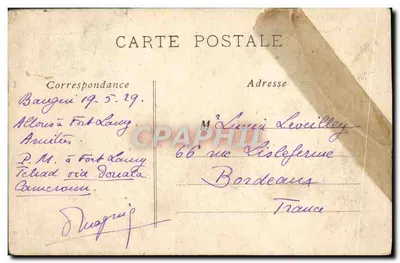 CARTE POSTALE
Correspondance
Adresse
Bangui 19.5.29.
Allons à Fort Lamy
Amitiés
P. M. à Fort Lamy
Tchad via Douala
Cameroun
Mr Lucien
66 rue
Bordeaux
France